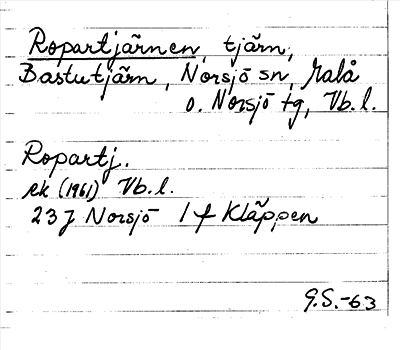 Ropartjärnen, tjärn,
Bastutjärn, Norsjö sn, Malå
o. Norsjö tg, Vb.l.
Ropartj.
ek (1961) Vb.l.
23J Norsjö 1f Kläppen
G.S.-63